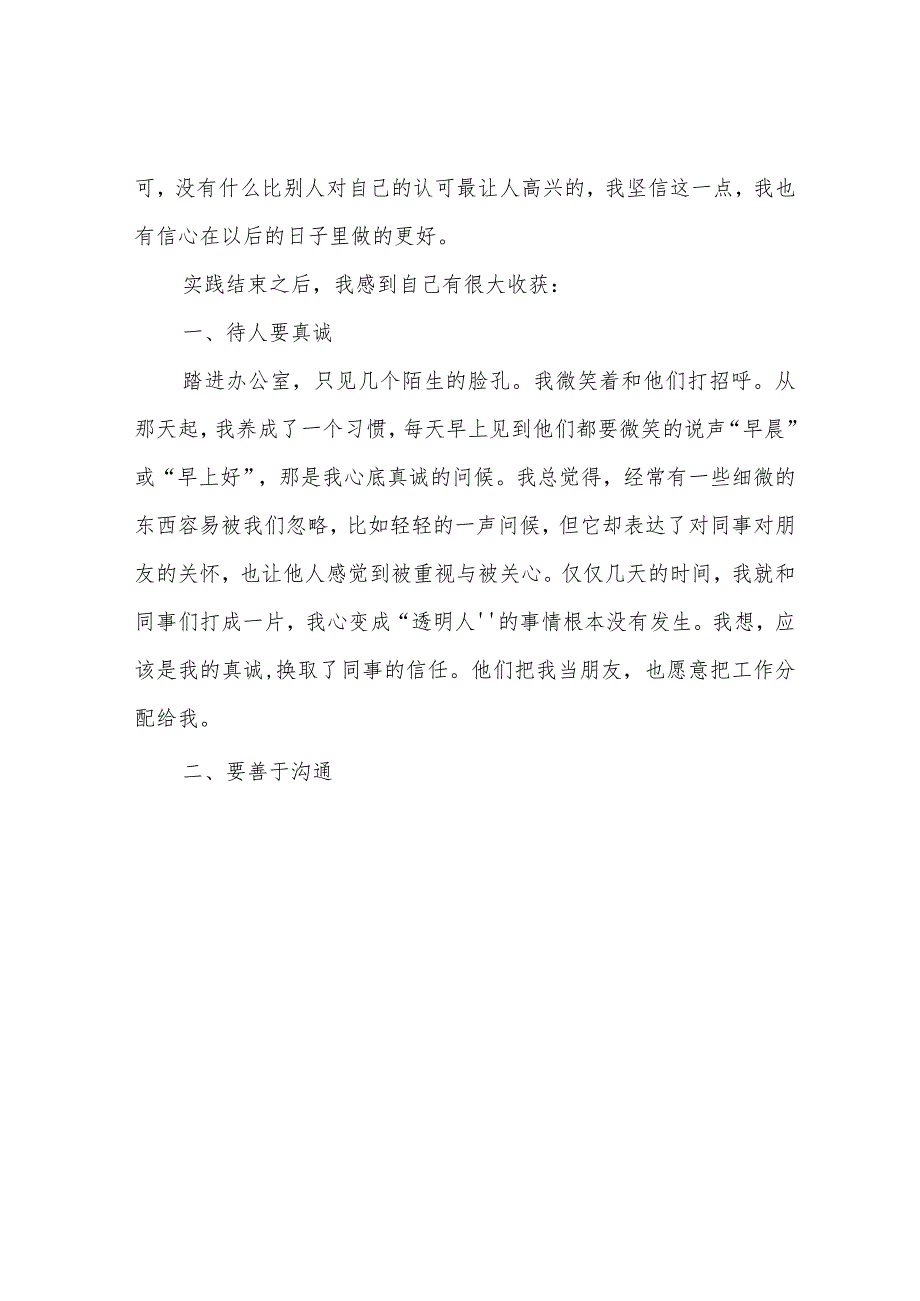 可，没有什么比别人对自己的认可最让人高兴的，我坚信这一点，我也
有信心在以后的日子里做的更好。
实践结束之后，我感到自己有很大收获：
一、待人要真诚
踏进办公室，只见几个陌生的脸孔。我微笑着和他们打招呼。从
那天起，我养成了一个习惯，每天早上见到他们都要微笑的说声“早晨”
或“早上好”，那是我心底真诚的问候。我总觉得，经常有一些细微的
东西容易被我们忽略，比如轻轻的一声问候，但它却表达了对同事对朋
友的关怀，也让他人感觉到被重视与被关心。仅仅几天的时间，我就和
同事们打成一片，我心变成“透明人''的事情根本没有发生。我想，应
该是我的真诚,换取了同事的信任。他们把我当朋友，也愿意把工作分
配给我。
二、要善于沟通